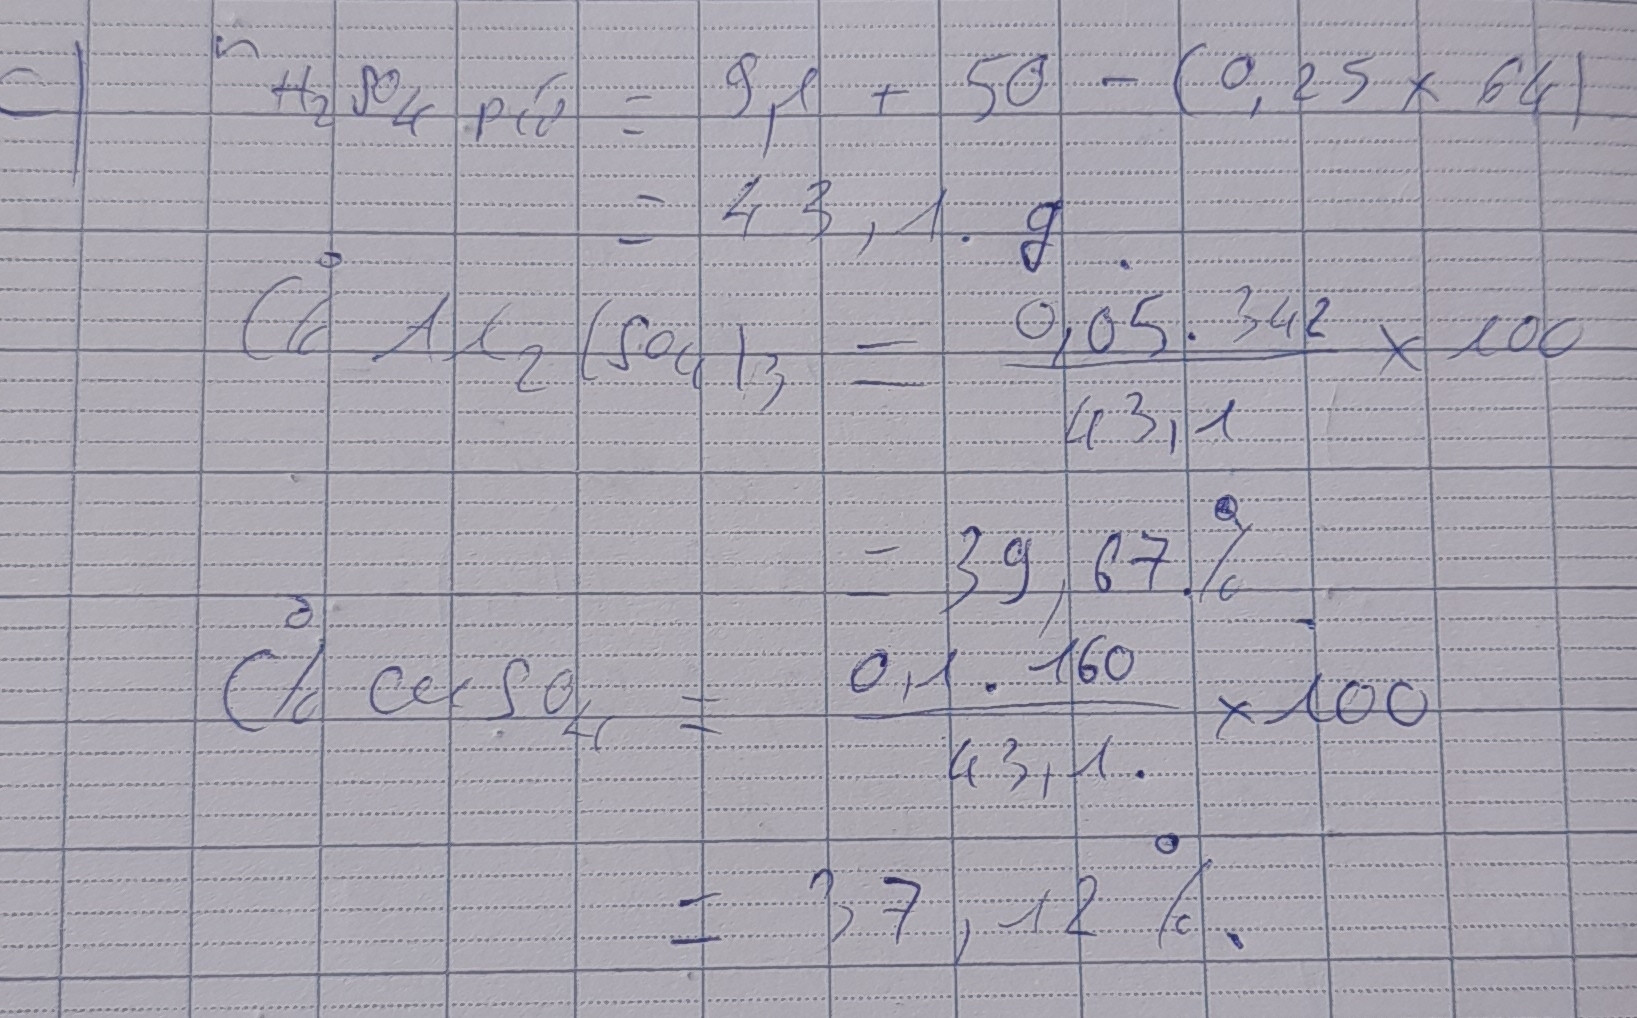 c) m H₂SO₄ pứ = 9,1 + 50 - (0,25 x 64)
= 43,1. g
C% Al₂(SO₄)₃ = 0,05.342 / 43,1 x 100
= 39,67.%
C% CuSO₄ = 0,1.160 / 43,1. x 100
= 37,12%.